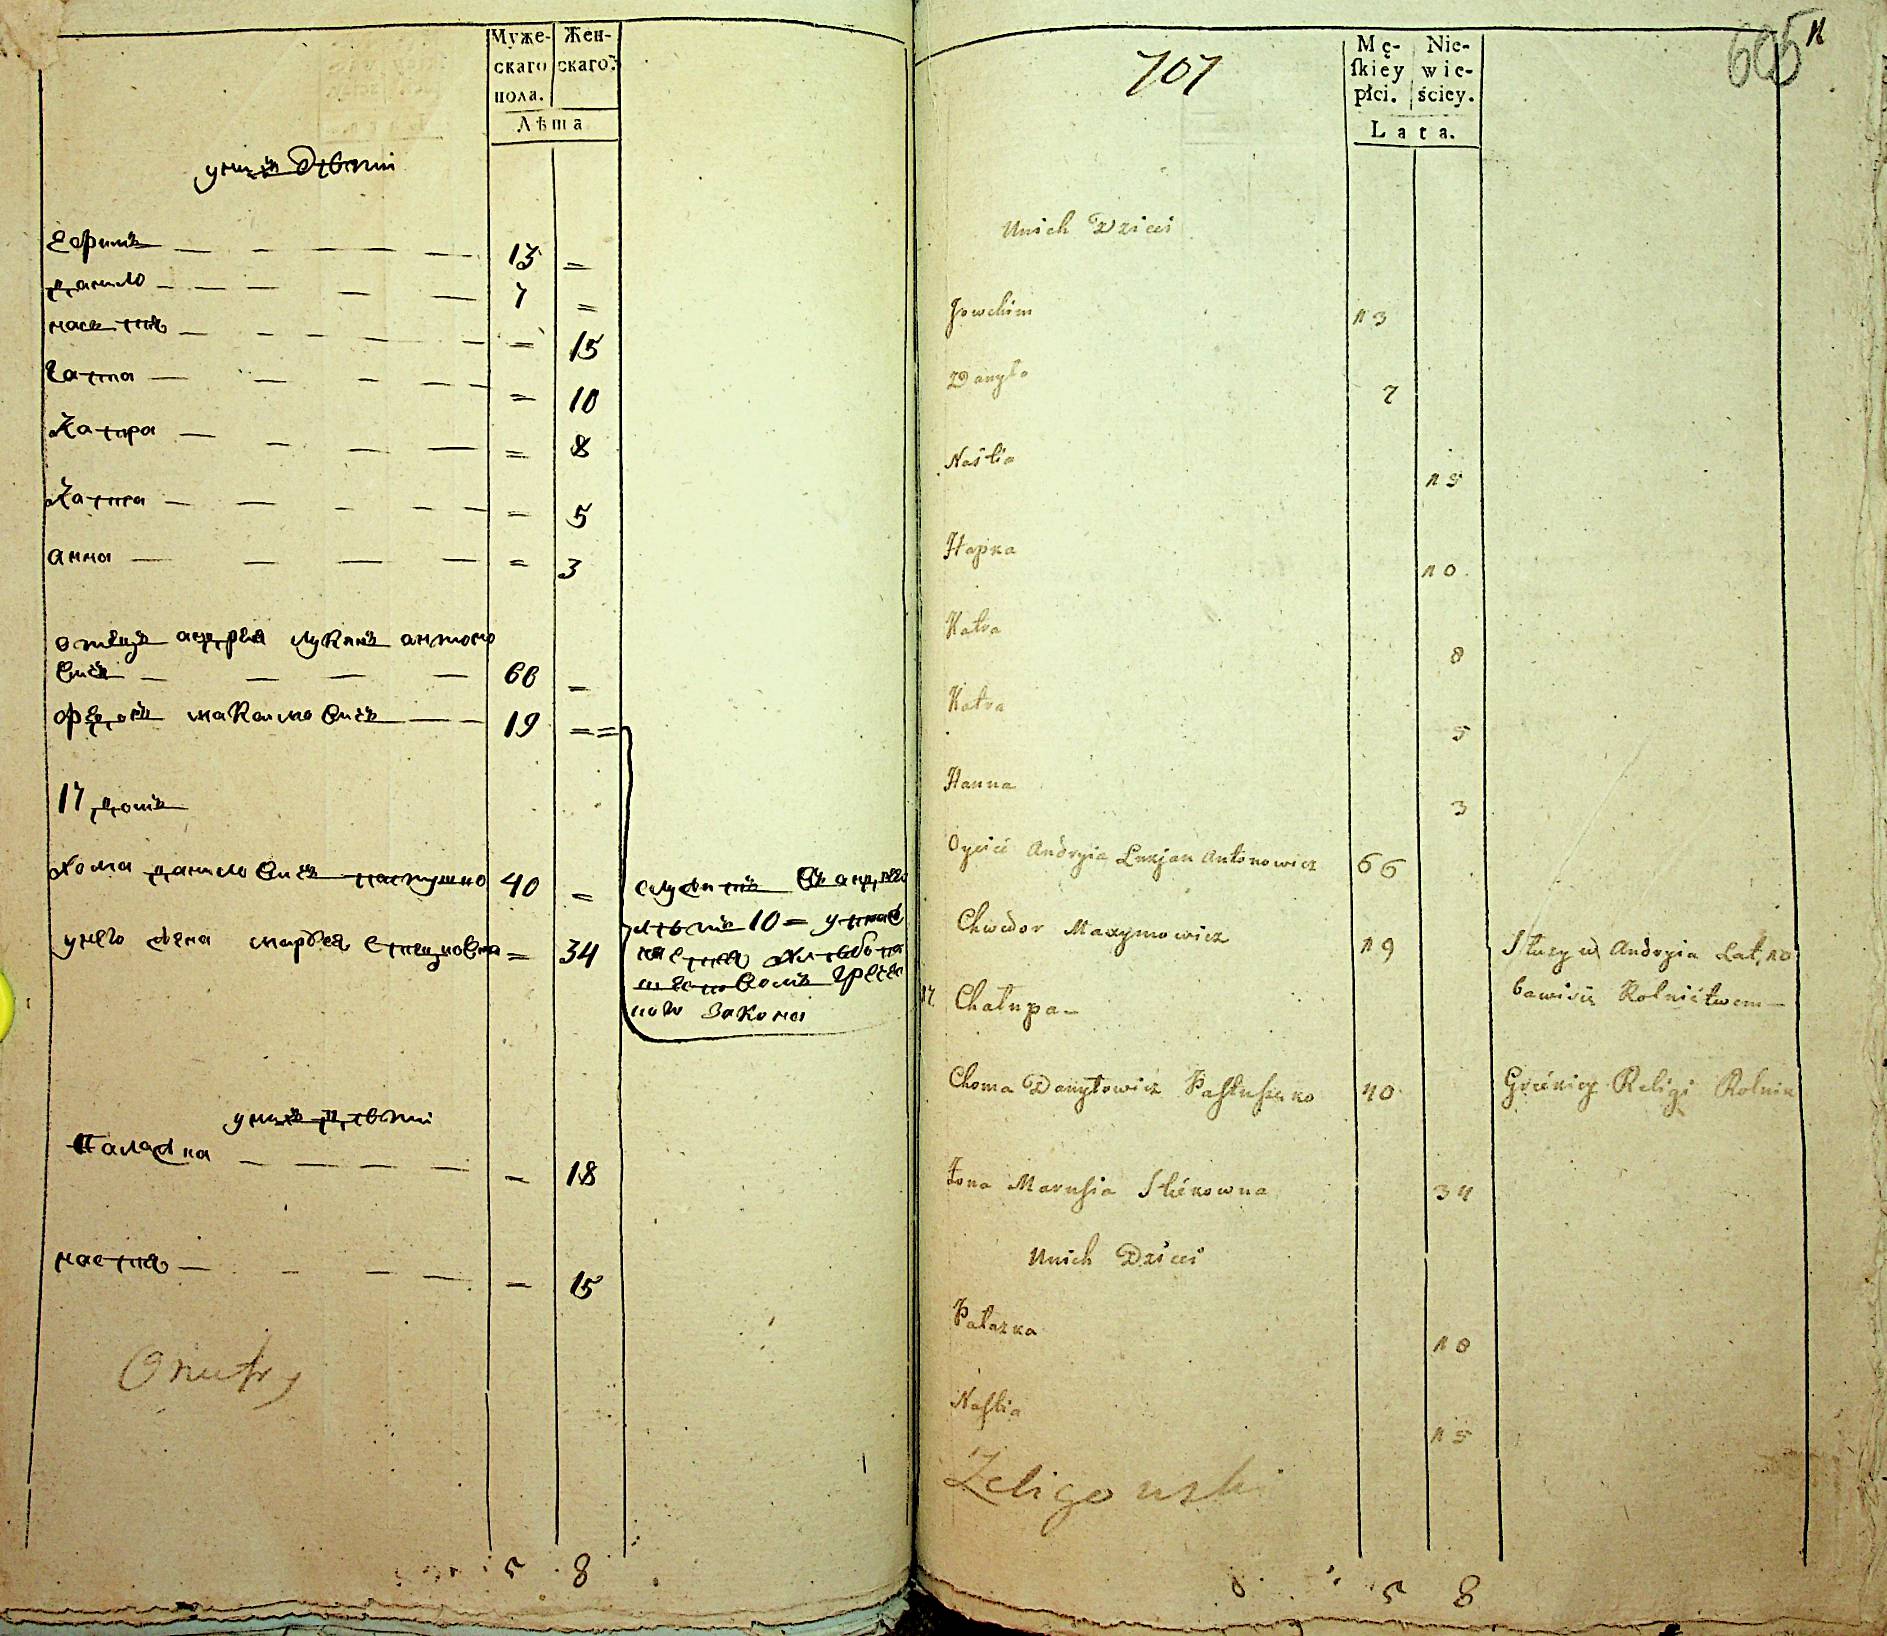 Муже-
скаго
пола.
Жен-
скаго
Лѣта
унихъ дѣти
Ефимъ 13 =
данило 7 =
настя = 15
Гапка = 10
Катра = 8
Катра = 5
анна = 3
отецъ андрея лукянъ антоно
вичъ 66 =
ѳедоръ максимовичъ 19 =
17 домъ
хома даниловичъ пастушко 40 =
служитъ въ андрея
лѣтъ 10 =
закона
унего жена 34
унихъ дѣти
Палажка = 18
настя = 15
5 8
707
695
Mę-
skiey
płci.
Nie-
wie-
ściey.
Lata.
Unich Dzieci
Jowchim 13
Danyło 7
Naścia 15
Hapka 10
Katra 8
Katra 5
Hanna 3
Oyciec Andryia Łukjan Antonowicz 66
Chwedor Maxymowicz 19
Służy u Andryia Lat, 10
bawisię Rolnictwem
17. Chałupa
Choma Danyłowicz Pastuszko 40
Religi Rolnik
Żona Marusia 34
Unich Dzieci
Pałazka 18
Nastia 15
Zeligowski
5 8